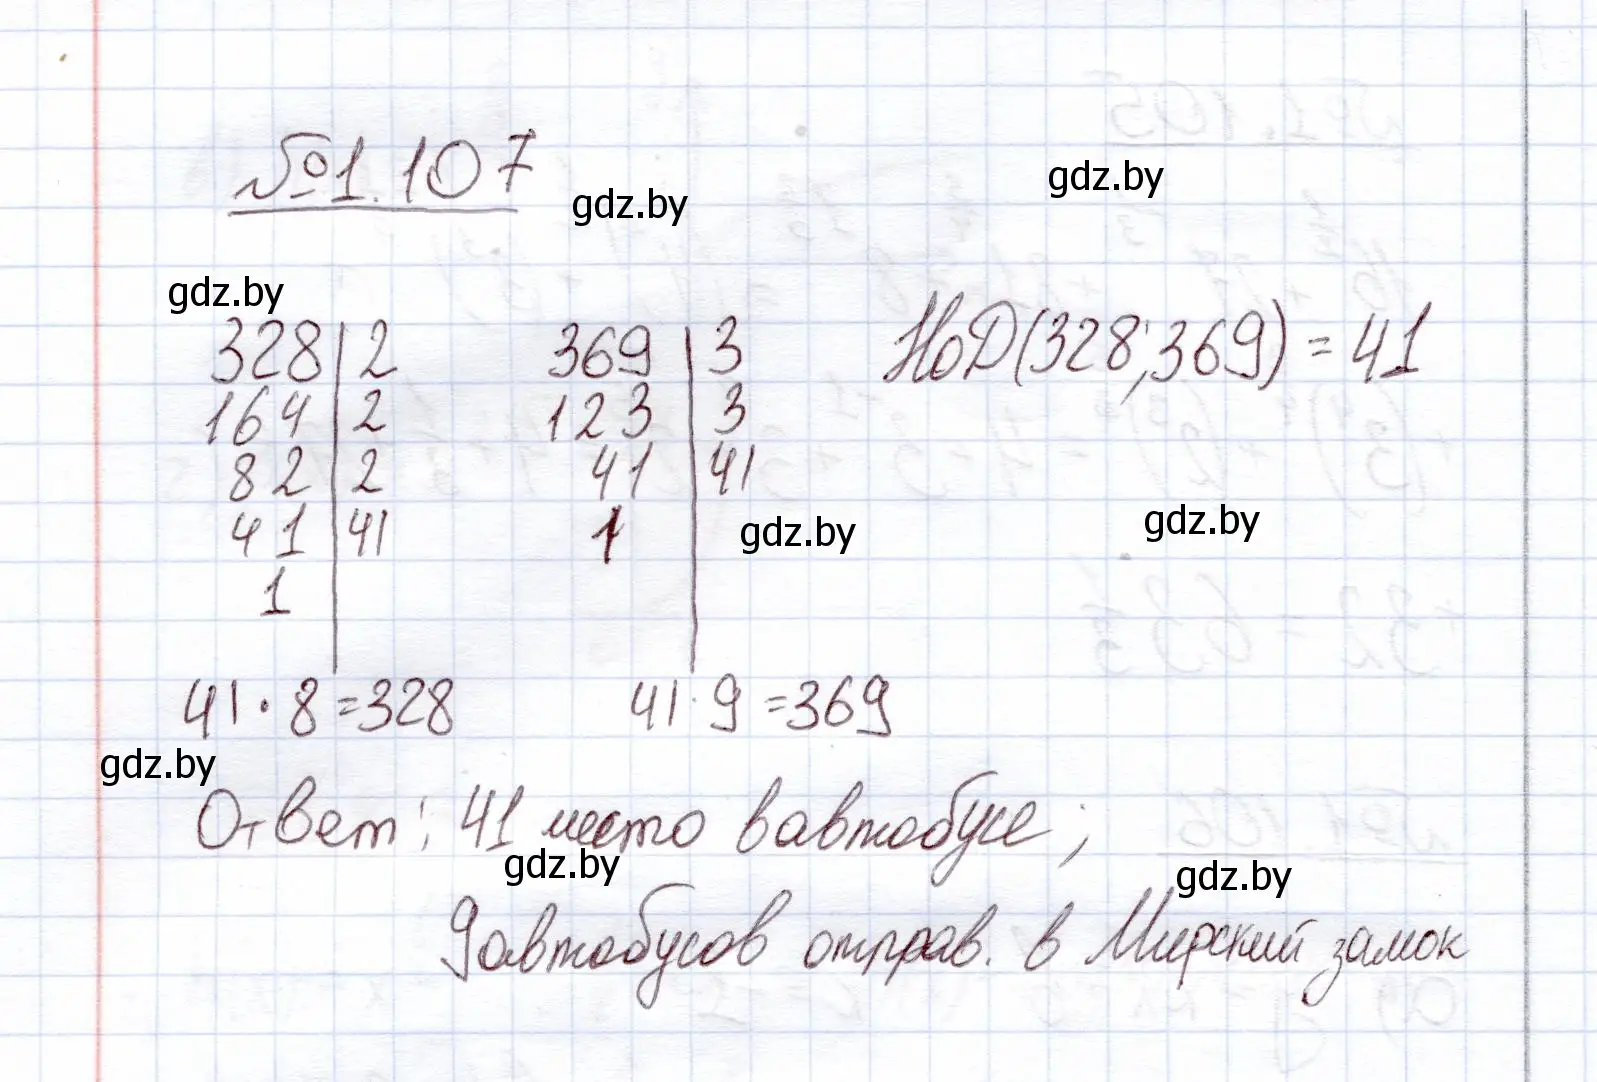 №1.107
gdz.by
gdz.by
gdz.by
328 | 2
164 | 2
82 | 2
41 | 41
1
369 | 3
123 | 3
41 | 41
1
НоD(328;369) = 41
gdz.by
gdz.by
41 · 8 = 328
41 · 9 = 369
gdz.by
Ответ: 41 место в автобусе;
gdz.by
gdz.by
9 автобусов отправ. в Мирский замок